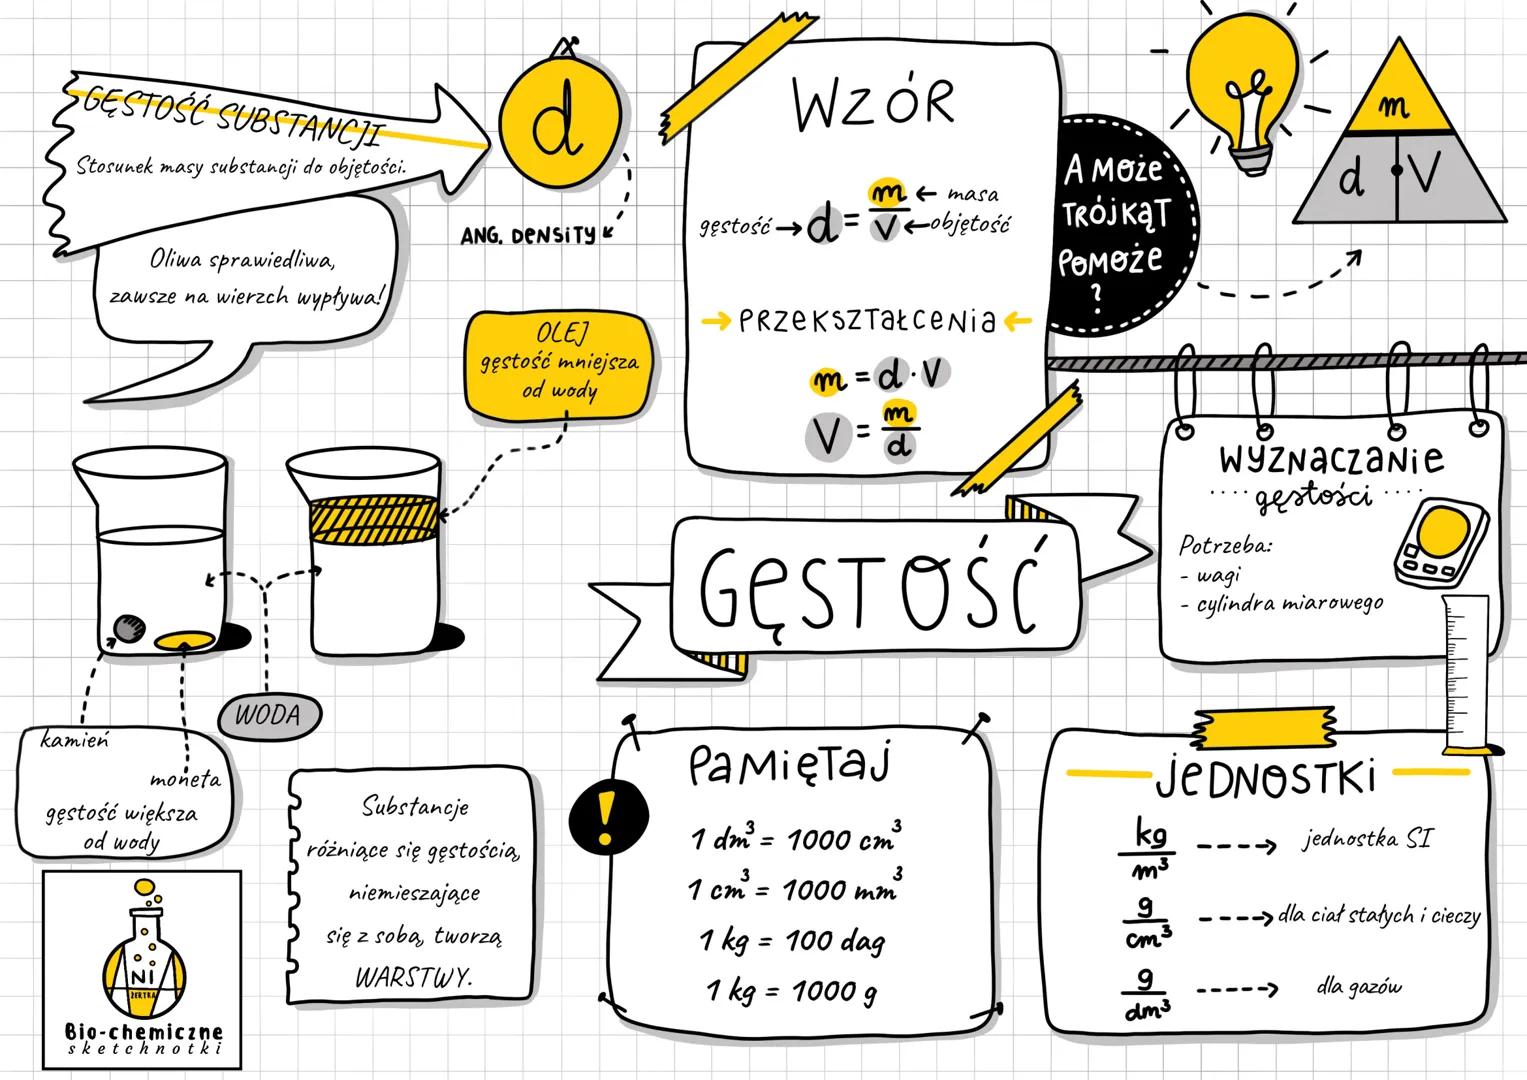 GĘSTOŚĆ SUBSTANCJI
Stosunek masy substancji do objętości.
d
ANG. DENSITY
Oliwa sprawiedliwa,
zawsze na wierzch wypływa!
WZÓR
gęstość → d = m/V
← masa
← objętość
→ PRZEKSZTAŁCENIA ←
m = d · V
V = m/d
A MOŻE
TRÓJKĄT
POMOŻE
?
m
d V
OLEJ
gęstość mniejsza
od wody
WODA
kamień
moneta
gęstość większa
od wody
GĘSTOŚĆ
WYZNACZANIE
gęstości
Potrzeba:
- wagi
- cylindra miarowego
Substancje
różniące się gęstością,
niemieszające
się z sobą, tworzą
WARSTWY.
!
PAMIĘTAJ
1 dm³ = 1000 cm³
1 cm³ = 1000 mm³
1 kg = 100 dag
1 kg = 1000 g
JEDNOSTKI
kg/m³ ----> jednostka SI
g/cm³ ----> dla ciał stałych i cieczy
g/dm³ -----> dla gazów
NI
ŻERTKA
Bio-chemiczne
sketchnotki